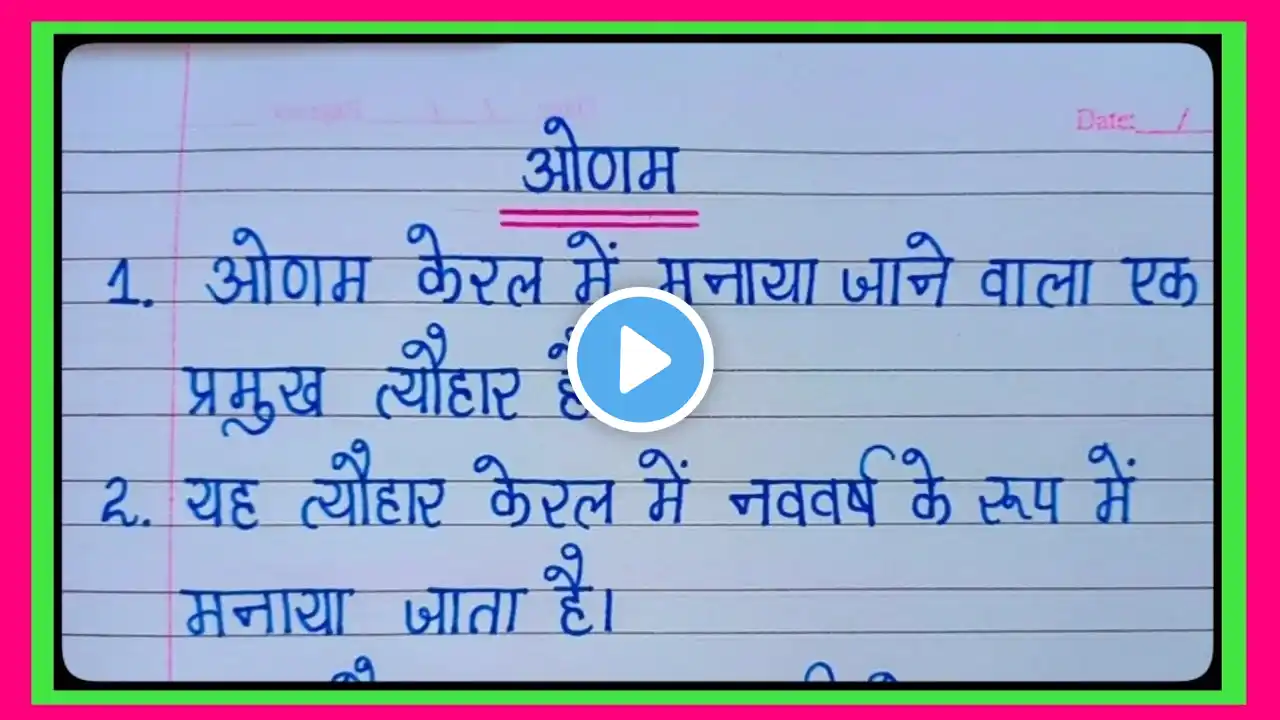 Date: / 
ओणम
1. ओणम केरल में मनाया जाने वाला एक
प्रमुख त्यौहार है
2. यह त्यौहार केरल में नववर्ष के रूप में
मनाया जाता है।